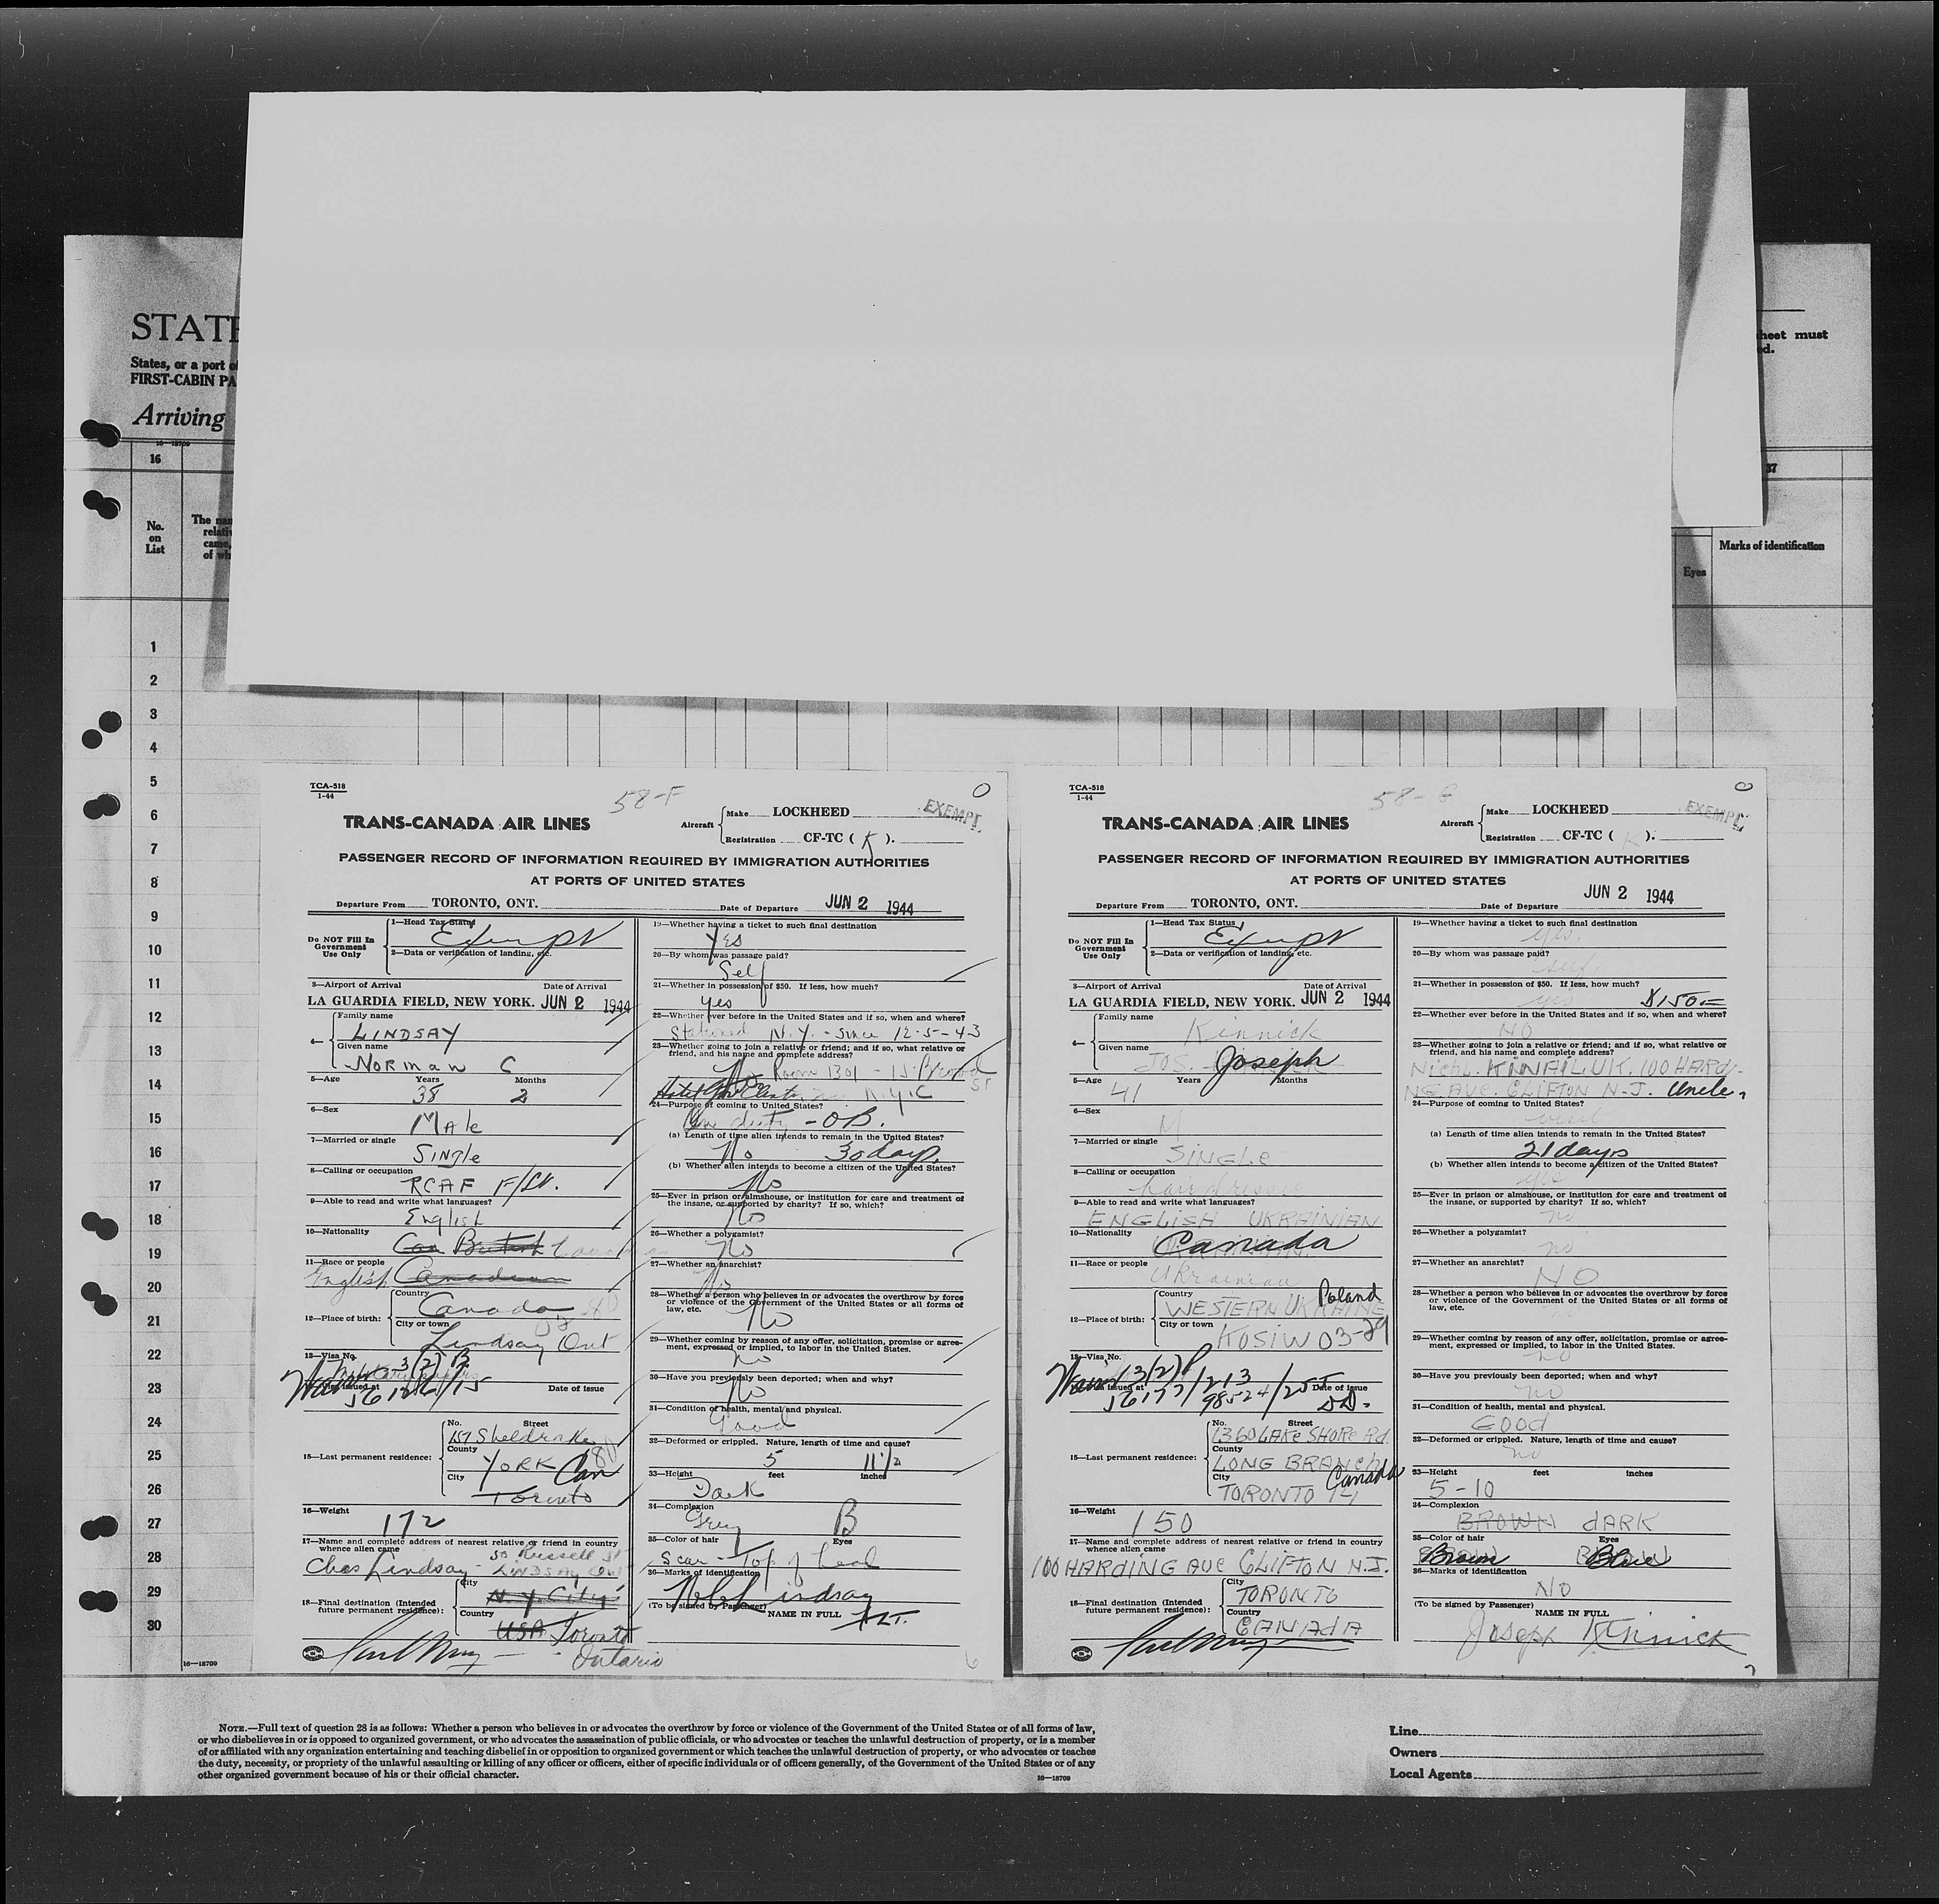 STATE
States, or a port of
FIRST-CABIN PA
Arriving
16—18709
16
No.
on
List
The nam
relativ
came,
of wh
heet must
ed.
37
Marks of identification
Eyes
1
2
3
4
5
6
7
8
9
10
11
12
13
14
15
16
17
18
19
20
21
22
23
24
25
26
27
28
29
30
16—18709
TCA-518
1-44
58-F
O
TRANS-CANADA AIR LINES
Aircraft
Make LOCKHEED
Registration CF-TC (K).
EXEMPT
PASSENGER RECORD OF INFORMATION REQUIRED BY IMMIGRATION AUTHORITIES
AT PORTS OF UNITED STATES
Departure From TORONTO, ONT. Date of Departure JUN 2 1944
Do NOT Fill In
Government
Use Only
1—Head Tax Status
Exempt
2—Data or verification of landing, etc.
3—Airport of Arrival Date of Arrival
LA GUARDIA FIELD, NEW YORK. JUN 2 1944
4—
Family name
LINDSAY
Given name
Norman C
5—Age Years Months
38 2
6—Sex
Male
7—Married or single
Single
8—Calling or occupation
RCAF F/Lt.
9—Able to read and write what languages?
English
10—Nationality
Can British
11—Race or people
English Canadian
12—Place of birth:
Country
Canada
City or town
Lindsay Ont
13—Visa No.
3(2) B
issued at Date of issue
15—Last permanent residence:
No. Street
157 Sheldrake
County
York Can
City
Toronto
16—Weight
172
17—Name and complete address of nearest relative or friend in country
whence alien came
50 Russell St
Chas Lindsay - Lindsay Ont
18—Final destination (Intended
future permanent residence):
City
N.Y. City
Country
USA Toronto
Ontario
19—Whether having a ticket to such final destination
Yes
20—By whom was passage paid?
Self
21—Whether in possession of $50. If less, how much?
Yes
22—Whether ever before in the United States and if so, when and where?
Stationed N.Y. - Since 12-5-43
23—Whether going to join a relative or friend; and if so, what relative or
friend, and his name and complete address?
No Room 1301 - 15 Broad
St
N.Y.C
24—Purpose of coming to United States?
On duty - OB.
(a) Length of time alien intends to remain in the United States?
No 30 days
(b) Whether alien intends to become a citizen of the United States?
No
25—Ever in prison or almshouse, or institution for care and treatment of
the insane, or supported by charity? If so, which?
No
26—Whether a polygamist?
No
27—Whether an anarchist?
No
28—Whether a person who believes in or advocates the overthrow by force
or violence of the Government of the United States or all forms of
law, etc.
No
29—Whether coming by reason of any offer, solicitation, promise or agree-
ment, expressed or implied, to labor in the United States.
No
30—Have you previously been deported; when and why?
No
31—Condition of health, mental and physical.
Good
32—Deformed or crippled. Nature, length of time and cause?
5 11 1/2
33—Height feet inches
Dark
34—Complexion
Grey B
35—Color of hair Eyes
Scar - Top of head
36—Marks of identification
NC Lindsay
(To be signed by Passenger) NAME IN FULL
F/LT.
6
TCA-518
1-44
58-G
O
TRANS-CANADA AIR LINES
Aircraft
Make LOCKHEED
Registration CF-TC (K).
EXEMPT
PASSENGER RECORD OF INFORMATION REQUIRED BY IMMIGRATION AUTHORITIES
AT PORTS OF UNITED STATES
Departure From TORONTO, ONT. Date of Departure JUN 2 1944
Do NOT Fill In
Government
Use Only
1—Head Tax Status
Exempt
2—Data or verification of landing, etc.
3—Airport of Arrival Date of Arrival
LA GUARDIA FIELD, NEW YORK. JUN 2 1944
4—
Family name
Kinnick
Given name
JOS. Joseph
5—Age Years Months
41
6—Sex
M
7—Married or single
SINGLE
8—Calling or occupation
hairdresser
9—Able to read and write what languages?
ENGLISH UKRAINIAN
10—Nationality
Canada
11—Race or people
Ukrainian
12—Place of birth:
Country
WESTERN UKRAINE Poland
City or town
KOSIW 03-29
13—Visa No.
3(2)
issued at Date of issue
15—Last permanent residence:
No. Street
1360 LAKE SHORE Rd.
County
LONG BRANCH
City
TORONTO 14 Canada
16—Weight
150
17—Name and complete address of nearest relative or friend in country
whence alien came
100 HARDING AVE CLIFTON N.J.
18—Final destination (Intended
future permanent residence):
City
TORONTO
Country
CANADA
19—Whether having a ticket to such final destination
yes
20—By whom was passage paid?
self
21—Whether in possession of $50. If less, how much?
yes $150=
22—Whether ever before in the United States and if so, when and where?
NO
23—Whether going to join a relative or friend; and if so, what relative or
friend, and his name and complete address?
Nich. KINNAILUK. 100 HARDI-
NG AVE. CLIFTON N-J. Uncle,
24—Purpose of coming to United States?
visit
(a) Length of time alien intends to remain in the United States?
21 days
(b) Whether alien intends to become a citizen of the United States?
yes
25—Ever in prison or almshouse, or institution for care and treatment of
the insane, or supported by charity? If so, which?
no
26—Whether a polygamist?
no
27—Whether an anarchist?
NO
28—Whether a person who believes in or advocates the overthrow by force
or violence of the Government of the United States or all forms of
law, etc.
29—Whether coming by reason of any offer, solicitation, promise or agree-
ment, expressed or implied, to labor in the United States.
no
30—Have you previously been deported; when and why?
no
31—Condition of health, mental and physical.
GOOD
32—Deformed or crippled. Nature, length of time and cause?
no
33—Height feet inches
5-10
34—Complexion
BROWN DARK
35—Color of hair Eyes
Brown Blue
36—Marks of identification
NO
(To be signed by Passenger) NAME IN FULL
Joseph Kinnick
7
NOTE.—Full text of question 28 is as follows: Whether a person who believes in or advocates the overthrow by force or violence of the Government of the United States or of all forms of law,
or who disbelieves in or is opposed to organized government, or who advocates the assassination of public officials, or who advocates or teaches the unlawful destruction of property, or is a member
of or affiliated with any organization entertaining and teaching disbelief in or opposition to organized government or which teaches the unlawful destruction of property, or who advocates or teaches
the duty, necessity, or propriety of the unlawful assaulting or killing of any officer or officers, either of specific individuals or of officers generally, of the Government of the United States or of any
other organized government because of his or their official character.
16—18709
Line
Owners
Local Agents